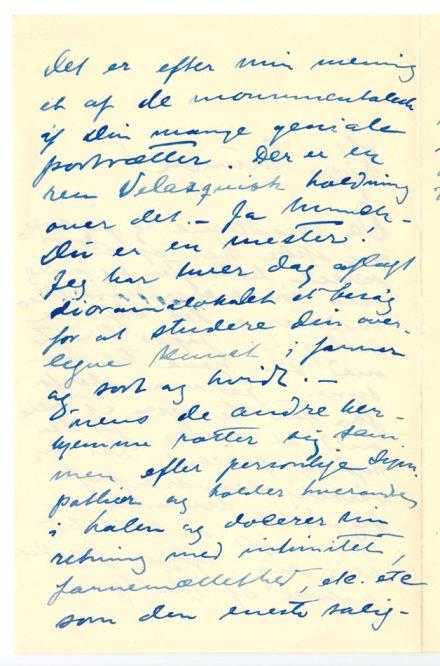 Det er efter min mening
et af de monumentaleste
af Din mange geniale
portrætter. Der er en
ren Velasquisk holdning
over det. – Ja Munch –
Du er en mester!
Jeg har hver dag aflagt
dioramalokalet et besøg
for at studere din over-
legne kunst i farver
og sort og hvidt. –
Mens de andre her-
hjemme rotter sig sam-
men efter personlige sym-
pathier og holder hverandre
i halen og dolerer sin
retning med intimitet,
farvemættethed, etc. etc
som den eneste salig-